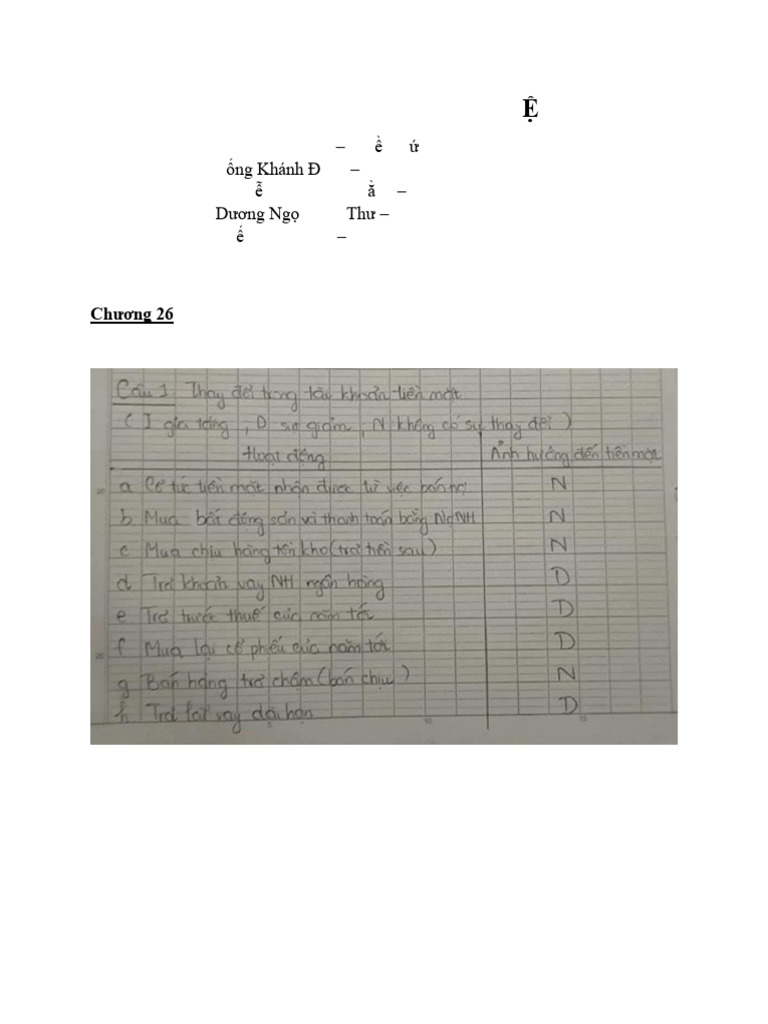 Ệ
– ề ứ
ống Khánh Đ –
ễ ằ –
Dương Ngọ Thư –
ế –
Chương 26
Câu 1: Thay đổi trong tài khoản tiền mặt
( I gia tăng , D sự giảm , N không có sự thay đổi )
Hoạt động Ảnh hưởng đến tiền mặt
a Cổ tức tiền mặt nhận được từ việc bán nợ N
b Mua bất động sản và thanh toán bằng Nợ NH N
c Mua chịu hàng tồn kho (trả tiền sau) N
d Trả khoản vay NH ngân hàng D
e Trả trước thuế của năm tới D
f Mua lại cổ phiếu của năm tới D
g Bán hàng trả chậm (bán chịu) N
h Trả lãi vay dài hạn D